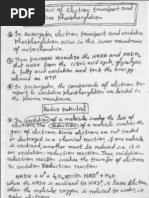 of Electron transport and
ive Phosphorylation
In eukaryotes, electron transport and oxidative
phosphorylation occur in the inner membrane
of mitochondria.
These processes reoxidize the NADH and FADH2
that arise from the citric acid cycle, glycolysis
fatty acid oxidation and trap the energy
released as ATP.
In prokaryotes, the components of electron
transport & oxidative phosphorylation are located in
the plasma membrane.
Redox Potential
The oxidation of a molecule involves the loss of
electrons, the reduction of a molecule involves the
gain of electrons. Since electrons are not created
or destroyed in a chemical reaction, if one molecule
is oxidized, another must be reduced i.e. it is
an oxidation-reduction reaction. Thus, oxidation
reduction reaction involve the transfer of electrons
NADH + H+ + ½O2 NAD+ + H2O
when the NADH is oxidized to NAD+, it loses electrons
when the molecular oxygen is reduced to water, it